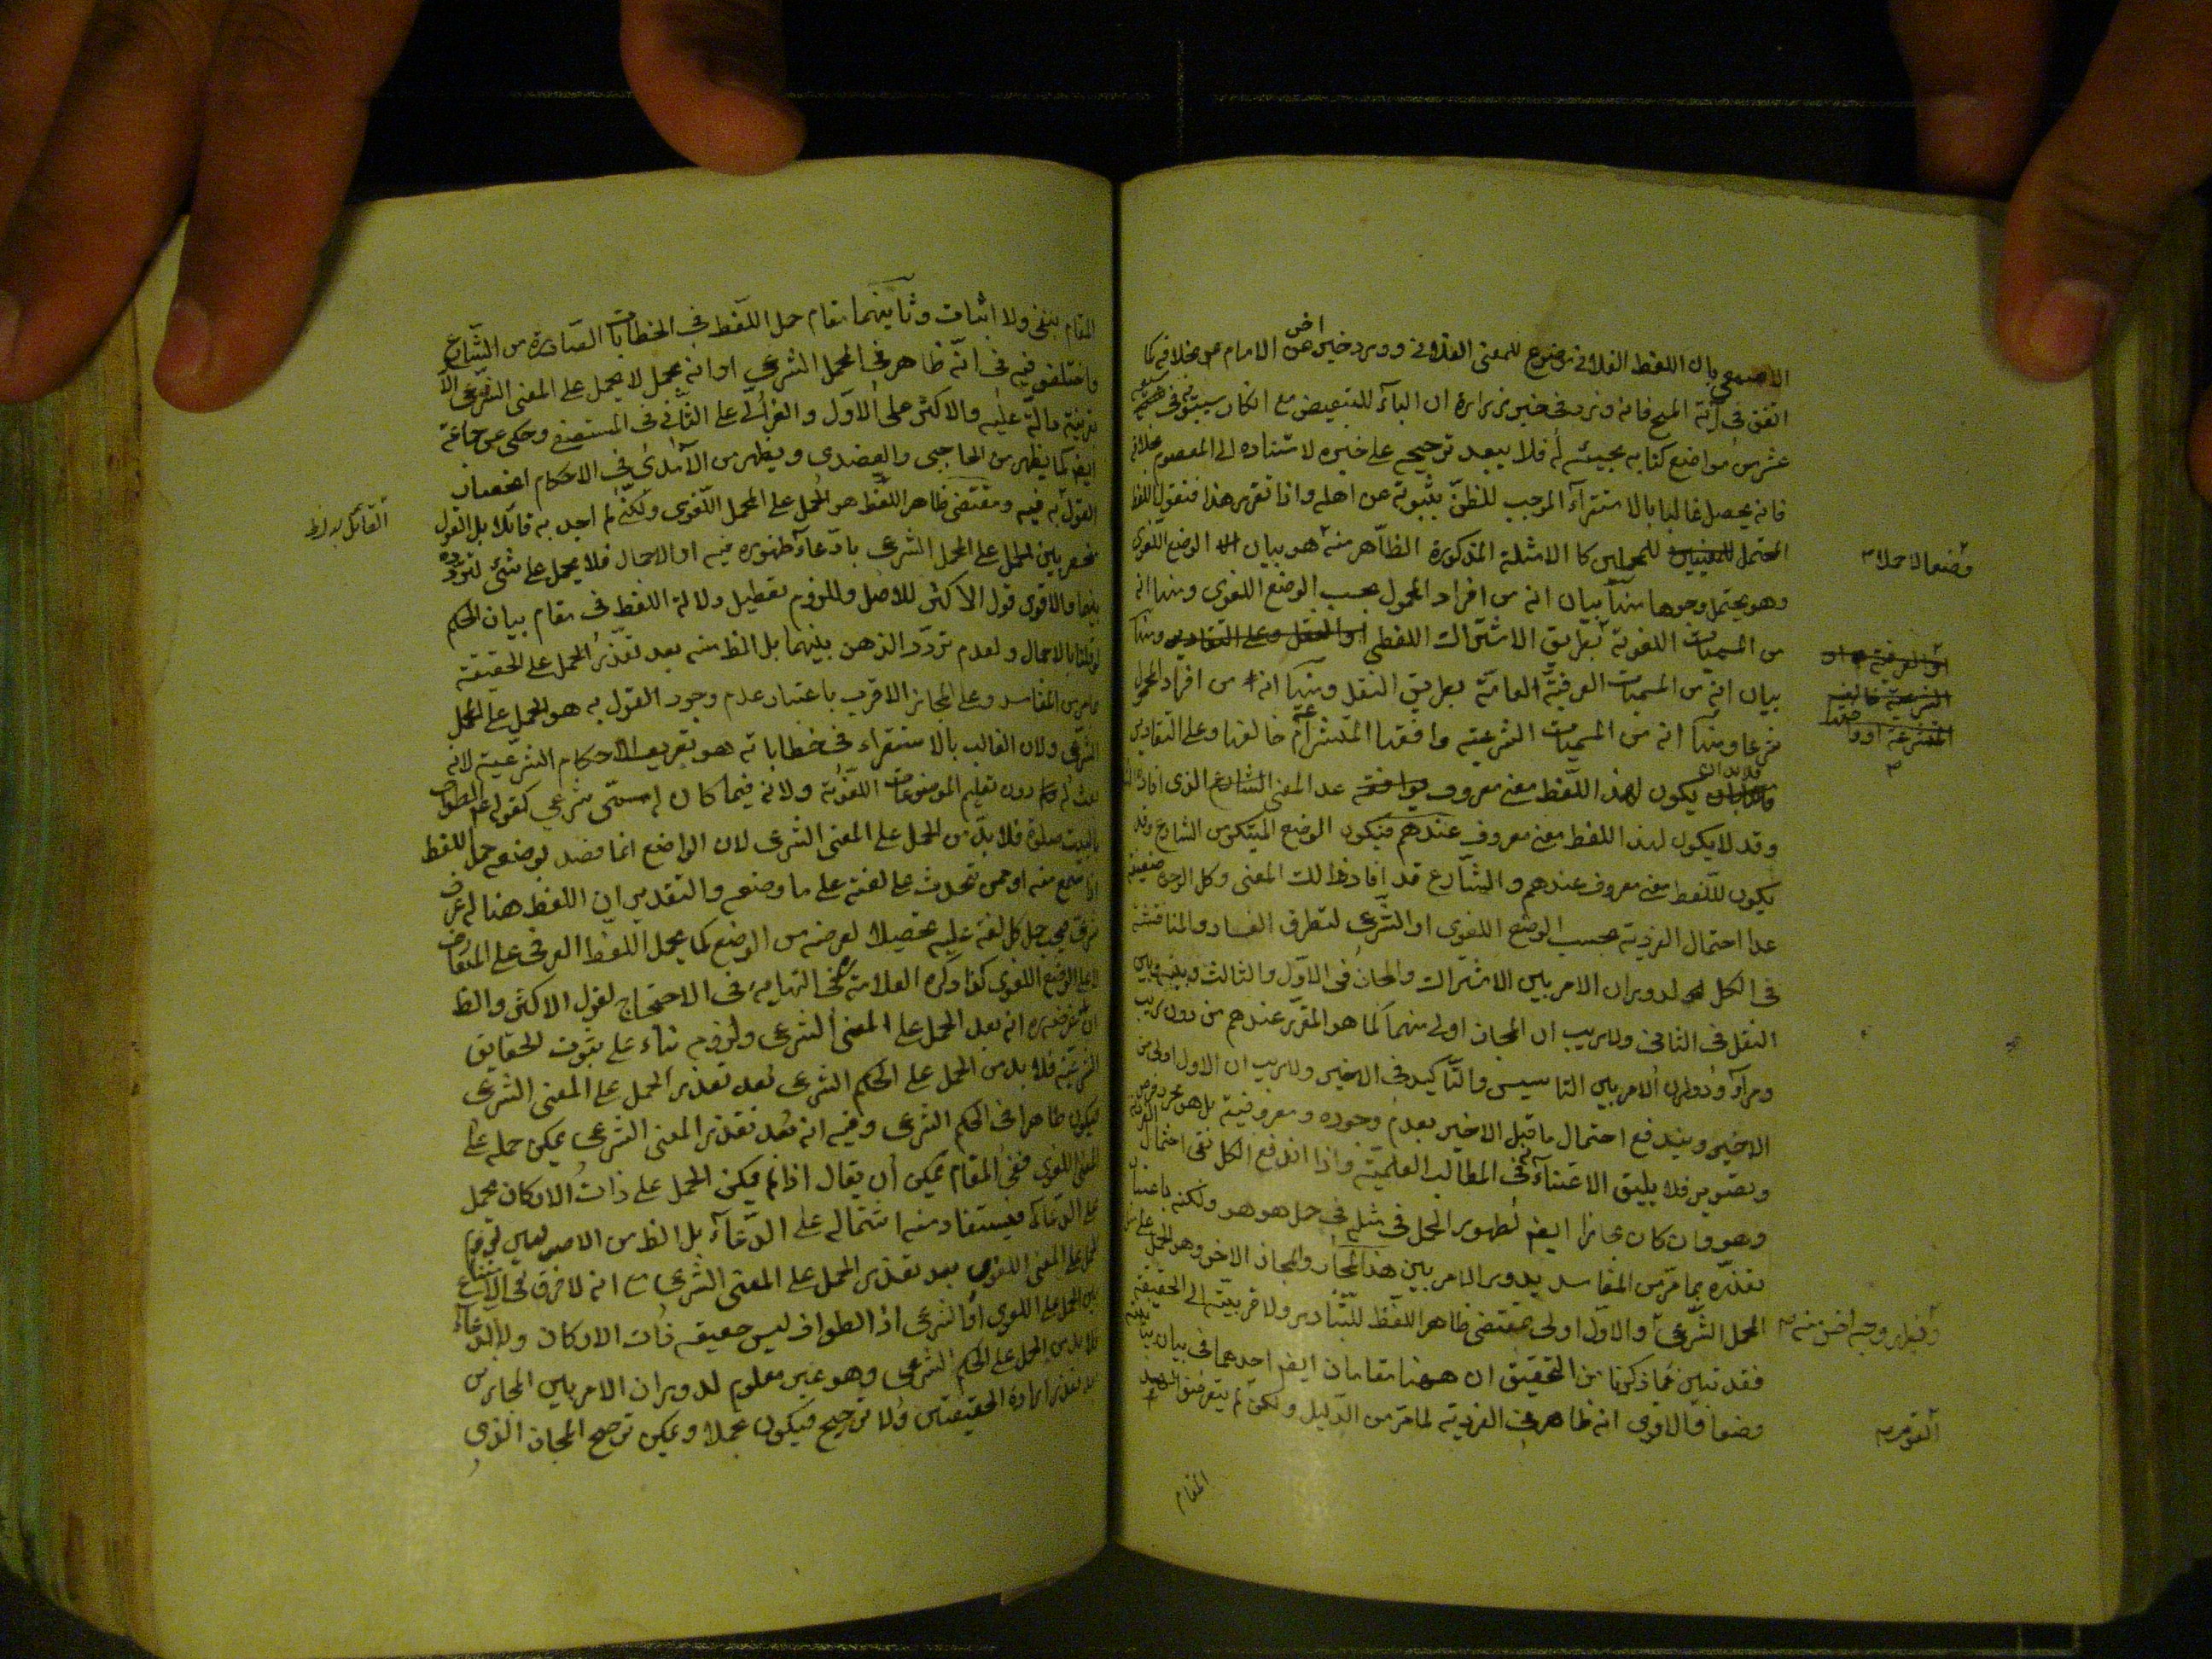 الاصمعي بان اللفظ الفلاني موضوع للمعنى الفلاني وورد خبر اخر عن الامام ع بخلافه كما
اتفق في آية المسح فانه ورد في خبر زرارة ان الباء للتبعيض مع انكار سيبويه في سبعة
عشر من مواضع كتابه مجيئه له فلا يبعد ترجيحه على خبره لاستناده الى المعصوم بخلافه
فانه يحصل غالبا بالاستقراء الموجب للظن بثبوته عن اهله واذا تقرر هذا فنقول اللفظ
المحتمل للمحملين كالامثلة المذكورة الظاهر منه هو بيان الوضع اللغوي
وهو يحتمل وجوها منها بيان انه من افراد المحمول بحسب الوضع اللغوي ومنها انه
من المسميات اللغوية بطريق الاشتراك اللفظي او النقل وعلى التقادير ومنها
بيان انه من المسميات العرفية العامة بطريق النقل ومنها انه من افراد المحمول
شرعا ومنها انه من المسميات الشرعية وافقها المتشرعة ام خالفها وعلى التقادير
فلا بد ان يكون لهذا اللفظ معنى معروف عند المعنى الشارع الذي افاده
وقد لا يكون لهذا اللفظ معنى معروف عندهم فيكون الوضع المبتكر من الشارع وقد
يكون للفظ معنى معروف عندهم والشارع قد افاد ذلك المعنى وكل الوجوه ضعيفة
عدا احتمال الفردية بحسب الوضع اللغوي او الشرعي لتطرق الفساد والمناقشة
في الكل لدوران الامر بين الاشتراك والمجاز في الاول والثالث وبينه وبين
النقل في الثاني ولا ريب ان المجاز اولى منهما كما هو المقرر عندهم من دون ريب
ومراء ودوران الامر بين التاسيس والتاكيد في الاخير ولا ريب ان الاول اولى من
الاخير ويندفع احتمال ما قبل الاخير بعدم وجوده ومعروفيته بل هو مجرد فرض
وتصوير فلا يليق الاعتناء به في المطالب العلمية واذا اندفع الكل بقى احتمال الفردية
وهو وان كان مجازا ايضا لظهور الحمل في مثله في حمل هو هو ولكنه باعتبار
تعذره بما مر من المفاسد يدور الامر بين هذا المجاز والمجاز الاخر وهو الحمل على
المحمل الشرعي والاول اولى بمقتضى ظاهر اللفظ للتبادر ولاقربيته الى الحقيقة
فقد تبين مما ذكرنا من التحقيق ان ههنا مقامان ايضا احدهما في بيان
وضعا فالاقوى انه ظاهر في الفردية لما مر من الدليل ولكن لم يتعرض
المقام
وضعا لاجلا
او العرفية
الشرعية خالفها
المتشرعة او
وجه اخر منه
القوم
المقام بنفي ولا اثبات وثانيهما مقام حمل اللفظ في الخطابات الصادرة من الشارع
واختلفوا فيه في انه ظاهر في المحمل الشرعي او انه مجمل لا يحمل على المعنى الشرعي الا
بقرينة دالة عليه والاكثر على الاول والغزالي على الثاني في المستصفى وحكى عن جماعة
ايضا كما يظهر من الحاجبي والعضدي ويظهر من الآمدي في الاحكام انحصار
القول به فيه ومقتضى ظاهر اللفظ هو الحمل على المحمل اللغوي ولكنه لم اجد به قائلا بل القول
منحصر بين الحمل على المحمل الشرعي بادعاء ظهوره فيه او الاجمال فلا يحمل على شيء لتردده
بينهما والاقوى قول الاكثر للاصل وللزوم تعطيل دلالة اللفظ في مقام بيان الحكم
لو قلنا بالاجمال ولعدم تردد الذهن بينهما بل الظ منه بعد تعذر الحمل على الحقيقة
بما مر من المفاسد وعلى المجاز الاقرب باعتبار عدم وجود القول به هو الحمل على المحمل
الشرعي ولان الغالب بالاستقراء في خطاباته هو تعريف الاحكام الشرعية لانه
بعث له دون تعليم الموضوعات اللغوية ولانه فيما كان له مسمى شرعي كقوله ع الطواف
بالبيت صلوة فلا بد من الحمل على المعنى الشرعي لان الواضع انما قصد بوضعه حمل اللفظ
اذا سمع منه او ممن تحدث على لغته على ما وضعه والتقدير ان اللفظ هنا له عرف
شرعي فيجب حمل كل لغة عليه تحصيلا لغرضه من الوضع كما يحمل اللفظ العرفي على المتعارف
لا على الوضع اللغوي كذا ذكره العلامة في النهاية في الاحتجاج لقول الاكثر والظ
ان غرضه انه بعد الحمل على المعنى الشرعي ولزومه بناء على ثبوت الحقايق
الشرعية فلا بد من الحمل على الحكم الشرعي بعد تعذر الحمل على المعنى الشرعي
فيكون ظاهرا في الحكم الشرعي وفيه انه بعد تعذر المعنى الشرعي يمكن حمله على
المعنى اللغوي ففي المقام يمكن ان يقال اذا لم يمكن الحمل على ذات الاركان يحمل
على الدعاء فيستفاد منه اشتماله على الدعاء بل الظ من الاصوليين
الحمل على المعنى اللغوي بعد تعذر الحمل على المعنى الشرعي مع انه لا فرق في الامتناع
بين الحمل على اللغوي او الشرعي اذ الطواف ليس حقيقة ذات الاركان ولا الدعاء
فلا بد من الحمل على الحكم الشرعي وهو غير معلوم لدوران الامر بين المجاز من
بعد تعذر ارادة الحقيقتين ولا ترجيح فيكون مجملا ويمكن ترجيح المجاز الذي
القائل